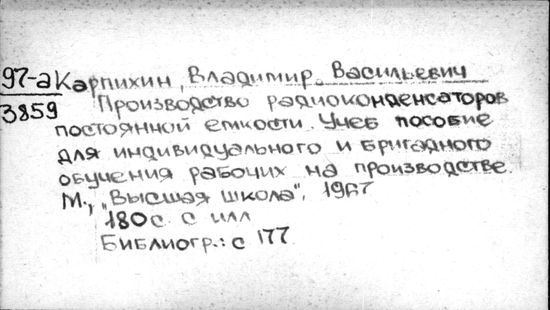 97-а Карпихин, Владимир Васильевич
3859 Производство радиоконденсаторов
постоянной емкости. Учеб пособие
для индивидуального и бригадного
обучения рабочих на производстве.
М., "Высшая школа", 1967
180 с. с илл
Библиогр.: с 177